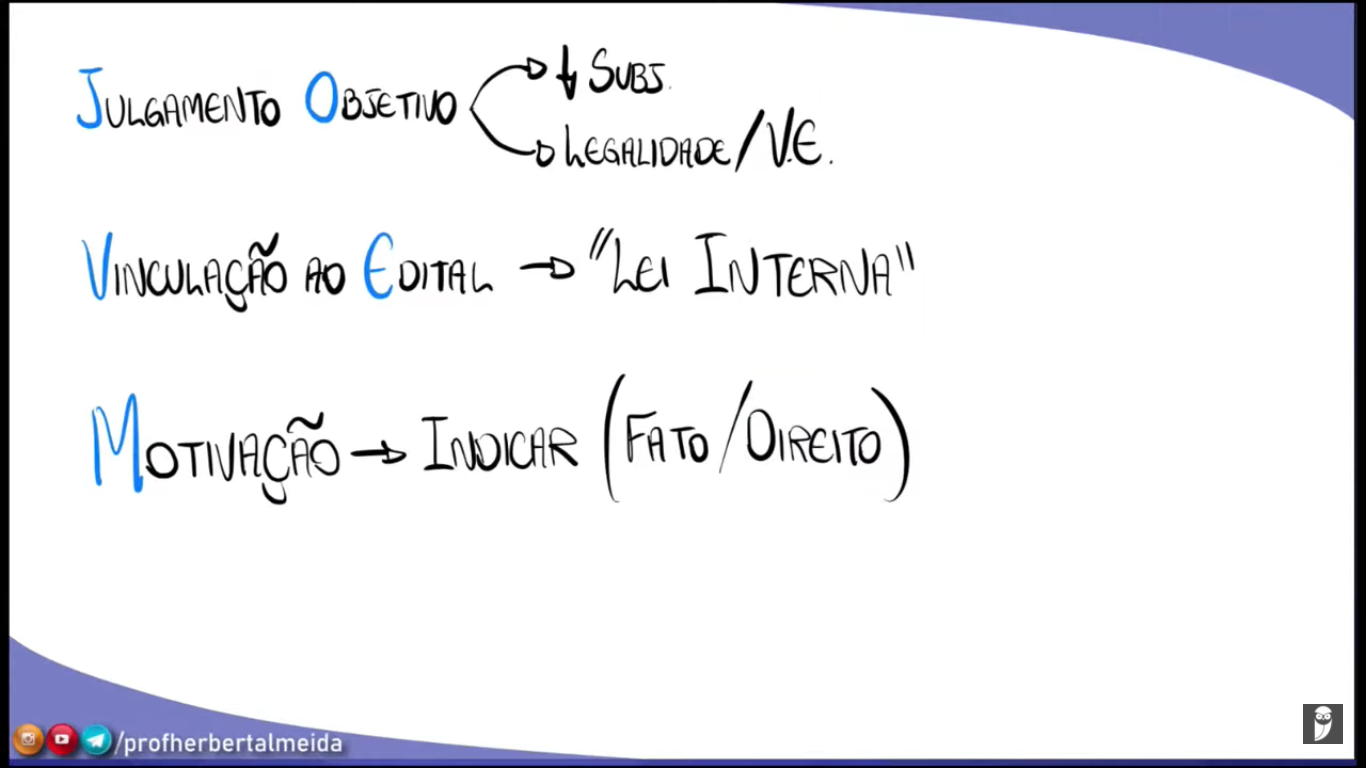 JULGAMENTO OBJETIVO → ↓ SUBJ.
→ LEGALIDADE / V.E.
VINCULAÇÃO AO EDITAL → "LEI INTERNA"
MOTIVAÇÃO → INDICAR (FATO/DIREITO)
/profherbertalmeida